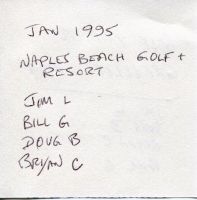 JAN 1995
NAPLES BEACH GOLF +
RESORT
JIM L
BILL G
DOUG B
BRYAN C